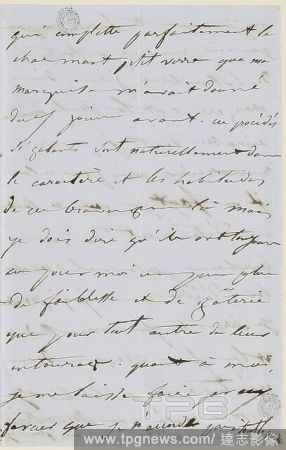 qui complette parfaitement le
charmant petit verre que ma
marquise m'avait donné
deux jours avant. ces procédés
si galants sont naturellement dans
le caractère et les habitudes
de ces braves gens là mais
je dois dire qu'ils ont toujours
eu pour moi un peu plus
de faiblesse et de gâterie
que pour tout autre de leur
entourage. quant à moi,
je me laisse faire par
forcer que je n'accorde
TPG
www.tpgnews.com | 達志影像